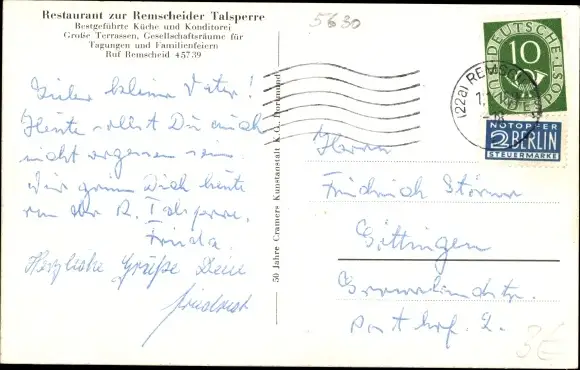 Restaurant zur Remscheider Talsperre
Bestgeführte Küche und Konditorei
Große Terrassen, Gesellschaftsräume für
Tagungen und Familienfeiern
Ruf Remscheid 45739
5630
Lieber kleiner Vater!
Heute sollst Du auch
nicht vergessen sein.
Wir grüßen Dich heute
von der R. Talsperre.
Frieda.
Herzliche Grüße Deine
50 Jahre Cramers Kunstanstalt K.G. Dortmund
DEUTSCHE BUNDESPOST
10
(22a) REMSCH
NOTOPFER
2 BERLIN
STEUERMARKE
Herrn
Friedrich Störmer
Göttingen
posthof. 2.
3€